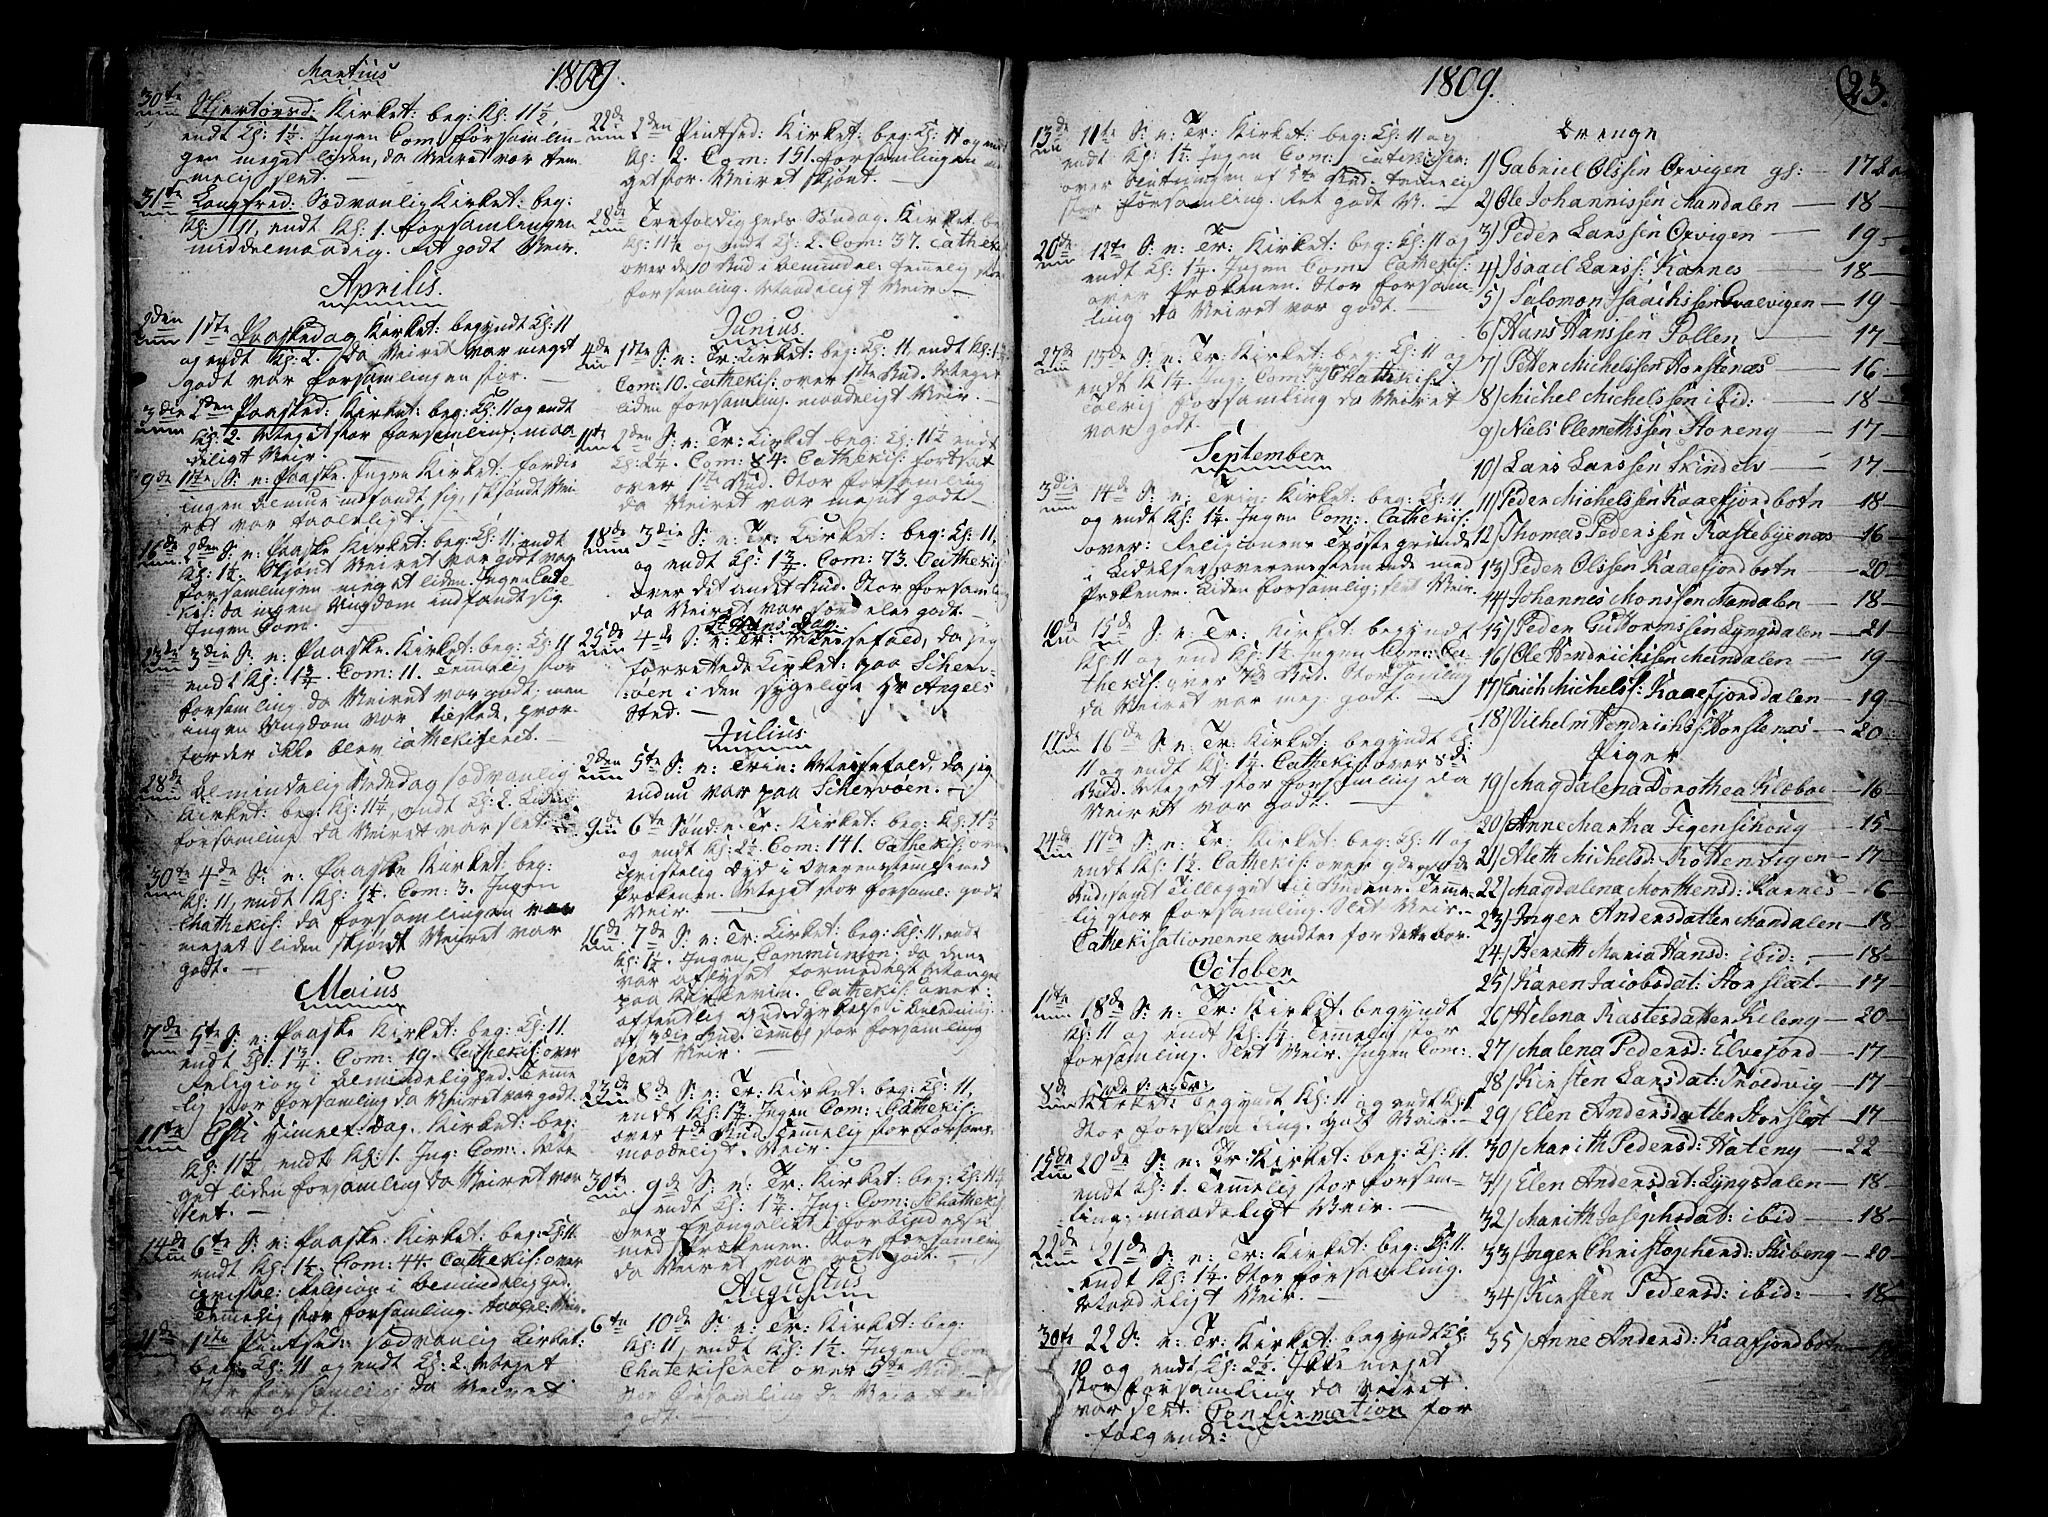 Martius
1809.
30te Skjertorsd: Kirket: beg: Kl: 11½,
endt Kl: 1½. Ingen Com: forsamlin-
gen meget liden, da Veiret var tem-
melig slet. —
31te Langfred: Sædvanlig Kirket: beg:
Kl: 11, endt Kl: 1. forsamlingen
middelmaadig. Ret godt Veir.
Aprilis.
2den 1ste Paaskedag Kirket: begyndt Kl: 11
og endt Kl: 2. Da Veiret var meget
godt var forsamlingen stor. —
3die 2den Paasked: Kirket: beg: Kl: 11 og endt
Kl: 2. Meget stor forsamling; maa-
deligt Veir.
9de 1ste S: e: Paaske. Ingen Kirket: fordi
ingen Almue indfandt sig, skjøndt Vei-
ret var taaleligt. —
16de 2den S: e: Paaske Kirket: beg: Kl: 11, endt
Kl: 1½. Skjønt Veiret var godt var
forsamlingen meget liden. Ingen Cate-
kis: da ingen Ungdom indfandt sig.
Ingen Com:
23de 3die S: e: Paaske. Kirket: beg: Kl: 11
endt Kl: 1¾. Com: 11. Temmelig stor
forsamling da Veiret var godt; men
ingen Ungdom var tilstede, hvor-
forder ikke blev Cathekiseret. —
28de Almindelig Bededag sædvanlig
Kirket: beg: Kl: 11½ endt Kl: 2. Liden
forsamling da Veiret var slet.
30te 4de S: e: Paaske Kirket: beg:
Kl: 11, endt Kl: 1½. Com: 3. Ingen
Chathekis: da forsamlingen var
meget liden skjøndt Veiret var
godt. —
Maius
7de 5te S: e: Paaske Kirket: beg: Kl: 11.
endt Kl: 1¾. Com: 19. Cathekis: over
Religion i Almindelighed. Temme
lig stor forsamling da Veiret var godt.
11te Chsti Himmelf: Dag. Kirket: beg:
Kl: 11½ endt Kl: 1. Ing: Com: Me
get liden forsamling da Veiret var
slet. —
14de 6te S: e: Paaske. Kirket: beg: Kl: 11.
endt Kl: 1½. Com: 44. Cathekis: over
christel: Religion i Almindelighed.
Temmelig stor forsamling. taalel: Veir.
21de 1ste Pintsed: sædvanlig Kirket:
beg: Kl: 11 og endt Kl: 2. Meget
stor forsamling da Veiret
var godt.
22de 2den Pintsed: Kirket: beg: Kl: 11 og endt
Kl: 2. Com: 151. forsamlingen me
get stor. Veiret skjønt. —
28de Trefoldigheds Søndag. Kirket: beg
Kl: 11½ og endt Kl: 2. Com: 37. Cathekis
over de 10 Bud i Almindel: Temmelig stor
forsamling. Maadeligt Veir. —
Junius.
4de 1ste S: e: Tr: Kirket: beg: Kl: 11. endt Kl: 1½
Com: 10. Cathekis: over 1ste Bud. Meget
liden forsamling. maadeligt Veir. —
11te 2den S: e: Tr: Kirket beg: Kl: 11½ endt
Kl: 2¼. Com: 84. Cathekis: fortsat
over 1ste Bud. Stor forsamling
da Veiret var meget godt —
18de 3die S: e: Tr: Kirket: beg: Kl: 11,
og endt Kl: 1¾. Com: 73. Cathekis:
over det andet Bud. Stor forsamling
da Veiret var særdeles godt. —
St Hans Dag.
25de 4de S: e: Tr: Messefald, da jeg
forrettede Kirket: paa Scherv-
øen i den sygelige Hr Angels
Sted. —
Julius
2den 5te S: e: Trin: Messefald, da jeg
endnu var paa Schervøen. —
9de 6te Sønd: e: Tr: Kirket: beg: Kl: 11½
og endt Kl: 2½. Com: 141. Cathekis: om
christelig Dyd i Overensstemmelse med
Prækenen. Meget stor forsaml: godt
Veir. —
16de 7de S: e: Tr: Kirket: beg: Kl: 11, endt
Kl: 1½. Ingen Communion; da dene
var aflyset formedelst Mangel
paa Kirkeviin. Cathekis: over:
offentlig Gudsdyrkelse i Anledning
af 3die Bud. Temel: stor forsamling
slet Veir. —
23de 8de S: e: Tr: Kirket: beg: Kl: 11,
endt Kl: 1¾. Ingen Com: Cathekis:
over 4de Bud. Temmelig stor forsaml:
maadeligt. Veir. —
30te 9de S: e: Tr: Kirket: beg: Kl: 11¼
og endt Kl: 1¾. Ing: Com: Chathekis:
over Evangeliet i forbindelse
med Prækenen. Stor forsamling
da Veiret var ret godt. —
Augustus
6te 10de S: e: Tr: Kirket: beg:
Kl: 11, endt Kl: 1½. Ingen Com:
Chatekiseret over 5te Bud —
Stor forsamling da Veiret var
godt. —
1809.
23.
13de 11te S: e: Tr: Kirket: beg: Kl: 11 og
endt Kl: 1½. Ingen Com: Catekiseret
over Slutningen af 5te Bud. temmelig
stor forsamling. Ret godt V: —
20de 12te S: e: Tr: Kirket: beg: Kl: 11 og
endt Kl: 1¼. Ingen Com: Cathekis:
over Prækenen. Stor forsam-
ling da Veiret var godt. —
27de 13de S: e: Tr: Kirket: beg: Kl: 11 og
endt Kl 1¼. Ing: Com: Ingen Chathekis:
Talrig forsamling da Veiret
var godt.
September
3die 14de S: e: Trin: Kirket: beg: Kl: 11
og endt Kl: 1¼. Ingen Com: Cathekis:
over: Religionens Trøstegrunde
i Lidelser, overensstemende med
Prækenen. Liden forsamling; slet Veir.
10de 15de S: e: Tr: Kirket: begyndt
Kl: 11 og end Kl: 1½ Ingen Com: Ca-
thekis: over 7de Bud. Stor samling
da Veiret var meg: godt. —
17de 16de S: e: Tr: Kirket: begyndt Kl:
11 og endt Kl: 1¼. Cathekis: over 8de
Bud. Meget stor forsamling da
Veiret var godt. —
24de 17de S: e: Tr: Kirket: beg: Kl: 11 og
endt Kl: 1½. Cathekis: over 9de og 10de
Bud, samt Tillægget til Budene. Teme-
lig stor forsamling. Slet Veir. —
Cathekisationerne endtes for dette Aar.
October
1ste 18de S: e: Tr: Kirket: begyndt
Kl: 11 og endt Kl: 1¼. Temmelig stor
forsamling. Slet Veir. Ingen Com:
8de 19de S: e: Tr:
Kirket: begyndt Kl: 11 og endt Kl: 1
Stor forsamling. godt Veir. —
15de 20de S: e: Tr: Kirket: beg: Kl: 11.
endt Kl: 1. Temmelig stor forsam-
ling. maadeligt Veir. —
22de 21de S: e: Tr: Kirket: beg: Kl: 11.
endt Kl: 1¼. Stor forsamling.
Maadeligt Veir. —
30te 22 S: e: Tr: Kirket: begyndt Kl:
10 og endt Kl: 2½. Ikke meget
stor forsamling da Veiret
var slet. Confirmation for
følgende:
Drenge
1) Gabriel Olssen Oxvigen gl: — 17
2) Ole Johannissen Mandalen — 18 —
3) Peder Larssen Oxvigen — 19 —
4) Israel Larss: Karnes — 18 —
5) Salomon Isaachssen Qvalvigen — 19 —
6) Hans Hanssen Pollen — 17 —
7) Peder Michelssen Horstenæs — 16 —
8) Michel Michelssen ibid: — 18 —
9) Niels Clemethssen Storeng — 17 —
10) Lars Larssen Skindelv — 17 —
11) Peder Michelssen Kaaefjordbotn — 18 —
12) Thomas Pederssen Kastebyenæs — 16 —
13) Peder Olssen Kaaefjordbotn — 20 —
14) Johannes Monssen Mandalen — 18 —
15) Peder Guttormssen Lyngsdalen — 21 —
16) Ole Hendrichssen Mandalen — 19 —
17) Erich Michelss: Kaaefjorddalen — 19 —
18) Vilhelm Hendrichss: Horstenæs — 20
Piger
19) Magdalena Dorothea Klæboe — 16 —
20) Anne Martha Figenschoug — 15 —
21) Aleth Michelsd: Rotten — 17 —
22) Magdalena Morthensd: Karnes — 16 —
23) Inger Andersdatter Mandalen — 18 —
24) Berreth Maria Hansd: ibid: — 18 —
25) Karen Jacobsdat: Horsslæt — 17 —
26) Helena Kastesdatter Kileng — 20 —
27) Malena Pedersd: Elvefjord — 17 —
28) Kirsten Larsdat: Troldvig — 17 —
29) Elen Andersdatter Horsslæt — 17 —
30) Marith Pedersd: Hateng — 22 —
31) Elen Andersdat: Lyngsdalen — 18 —
32) Marith Josephsdat: ibid — 18 —
33) Inger Christophersd: Skibeng — 20 —
34) Kirsten Pedersd: ibid: — 18 —
35) Anne Andersd: Kaaefjordbotn —